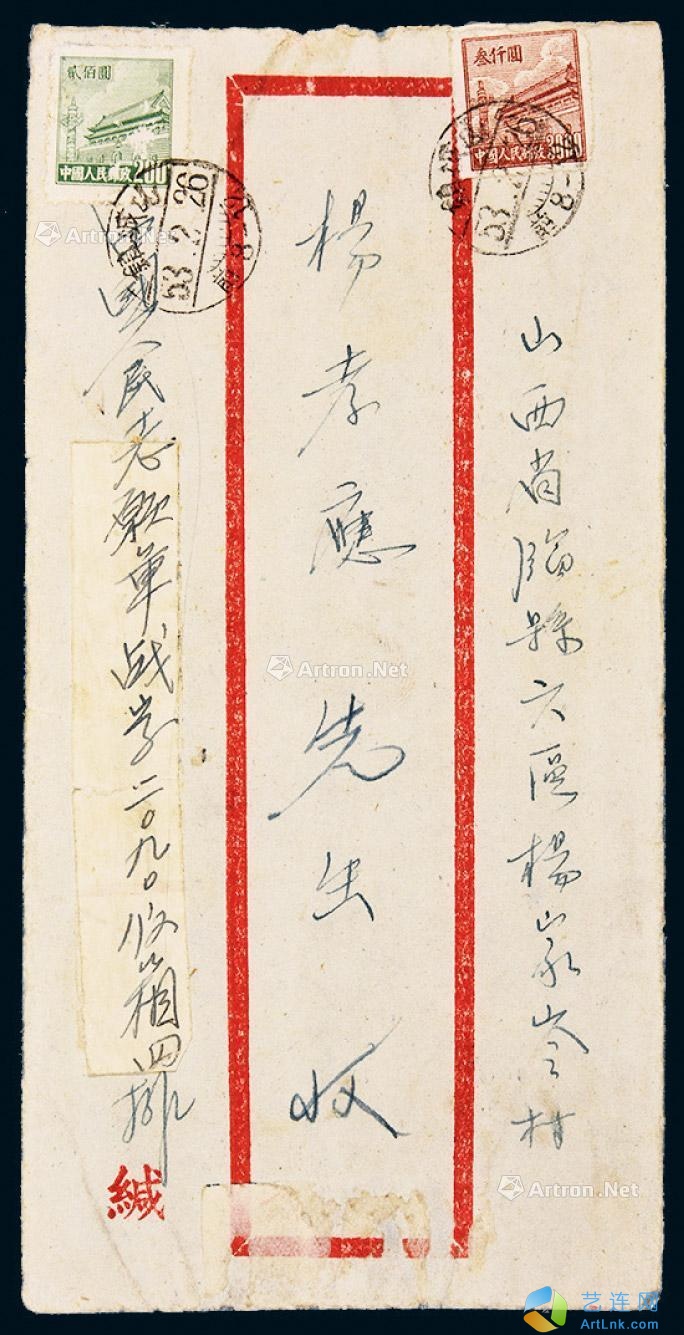 山西省臨縣六區楊家峁村
叁仟圓
中國人民郵政
楊孝應先生收
貳佰圓
中國人民郵政200
國人民志愿軍战字二〇九〇信箱四排
緘
53.2.26
53.2.26
Artron.Net
Artron.Net
Artron.Net
Artron.Net
艺连网
ArtLnk.com